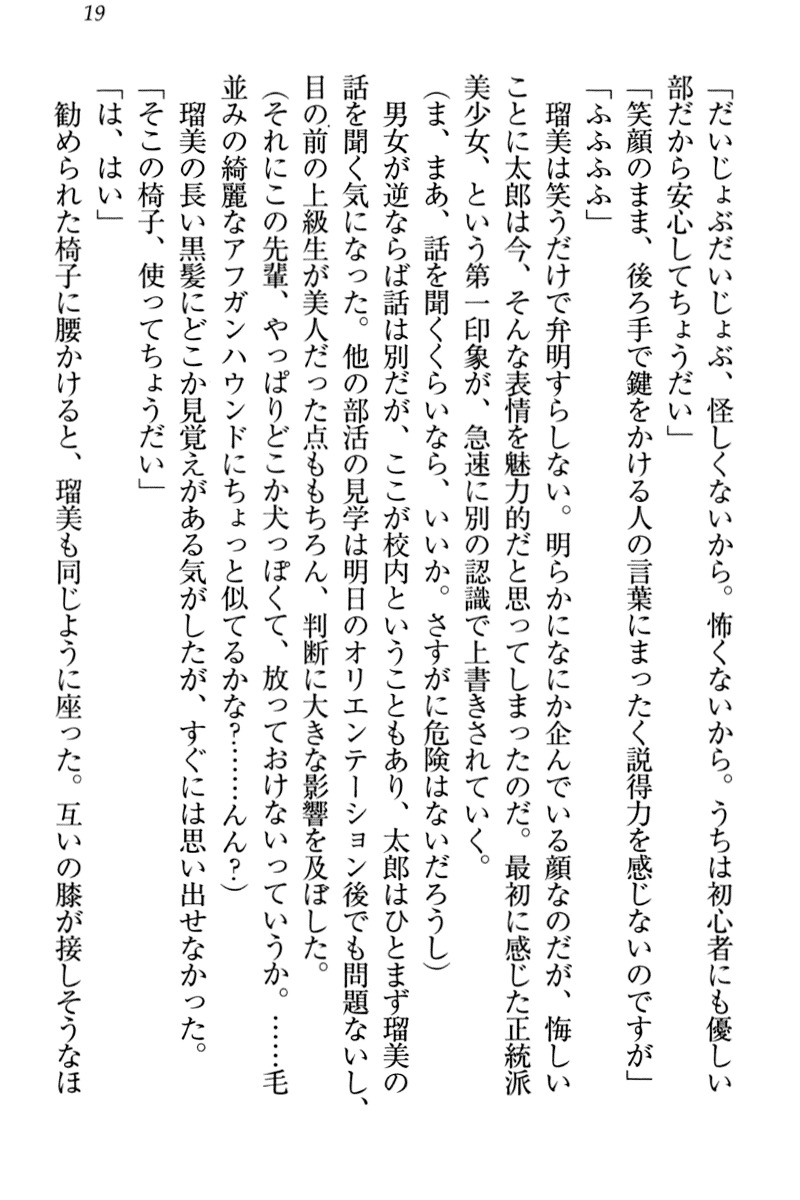 19
「だいじょぶだいじょぶ、怪しくないから。怖くないから。うちは初心者にも優しい
部だから安心してちょうだい」
「笑顔のまま、後ろ手で鍵をかける人の言葉にまったく説得力を感じないのですが」
「ふふふふ」
　瑠美は笑うだけで弁明すらしない。明らかになにか企んでいる顔なのだが、悔しい
ことに太郎は今、そんな表情を魅力的だと思ってしまったのだ。最初に感じた正統派
美少女、という第一印象が、急速に別の認識で上書きされていく。
（ま、まあ、話を聞くくらいなら、いいか。さすがに危険はないだろうし）
　男女が逆ならば話は別だが、ここが校内ということもあり、太郎はひとまず瑠美の
話を聞く気になった。他の部活の見学は明日のオリエンテーション後でも問題ないし、
目の前の上級生が美人だった点ももちろん、判断に大きな影響を及ぼした。
（それにこの先輩、やっぱりどこか犬っぽくて、放っておけないっていうか。……毛
並みの綺麗なアフガンハウンドにちょっと似てるかな？……んん？）
　瑠美の長い黒髪にどこか見覚えがある気がしたが、すぐには思い出せなかった。
「そこの椅子、使ってちょうだい」
「は、はい」
　勧められた椅子に腰かけると、瑠美も同じように座った。互いの膝が接しそうなほ